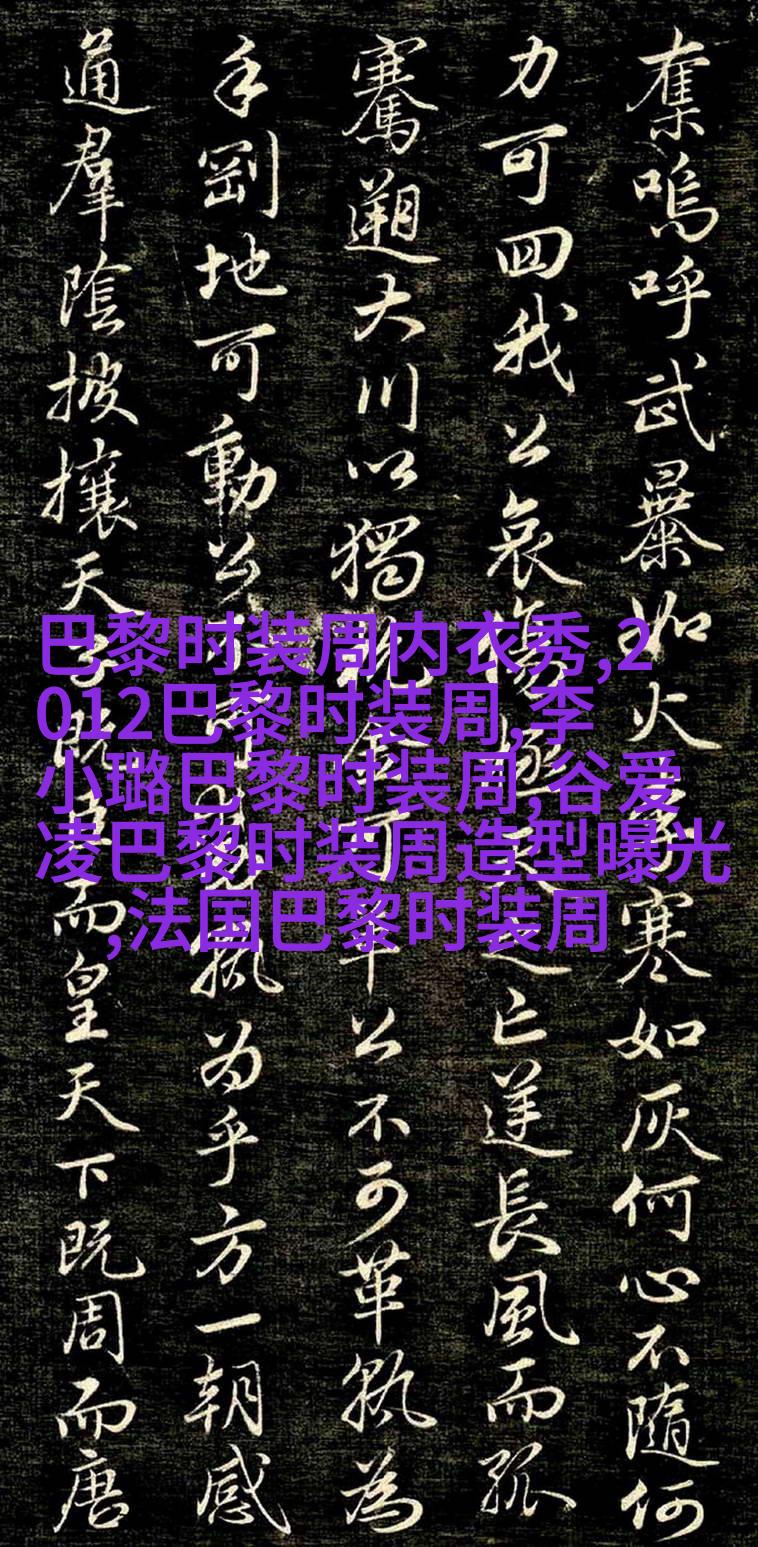 奪嗚呼武暴如火李寒如灰何心不隨何
力可回我公哀傷拯天之亡逆長風而孤
騫遡大川以獨航金可革公不可革孰為
乎剛地可動公不可動孰為乎方一朝感
通羣陰披攘天子既臣而皇天下既周而唐
巴黎时装周内衣秀,2
012巴黎时装周,李
小璐巴黎时装周,谷爱
凌巴黎时装周造型曝光
,法国巴黎时装周